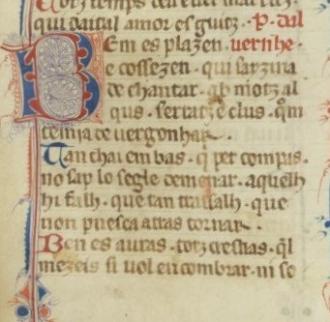 qui daital amor es guitz · P. dal
Bem es plazen uernhe·
e cossezen · qui sarzina
de chantar · ab motz al
qus · serratz e clus · qm
temia de uergonhar
Tan chai em bas · q per compas ·
no sap lo segle demenar · aquelh
hi falh · que tan trassalh · que
non puesca atras tornar ·
Ben es auras · totz crestias · ql
mezeis si uol encombrar · ni se